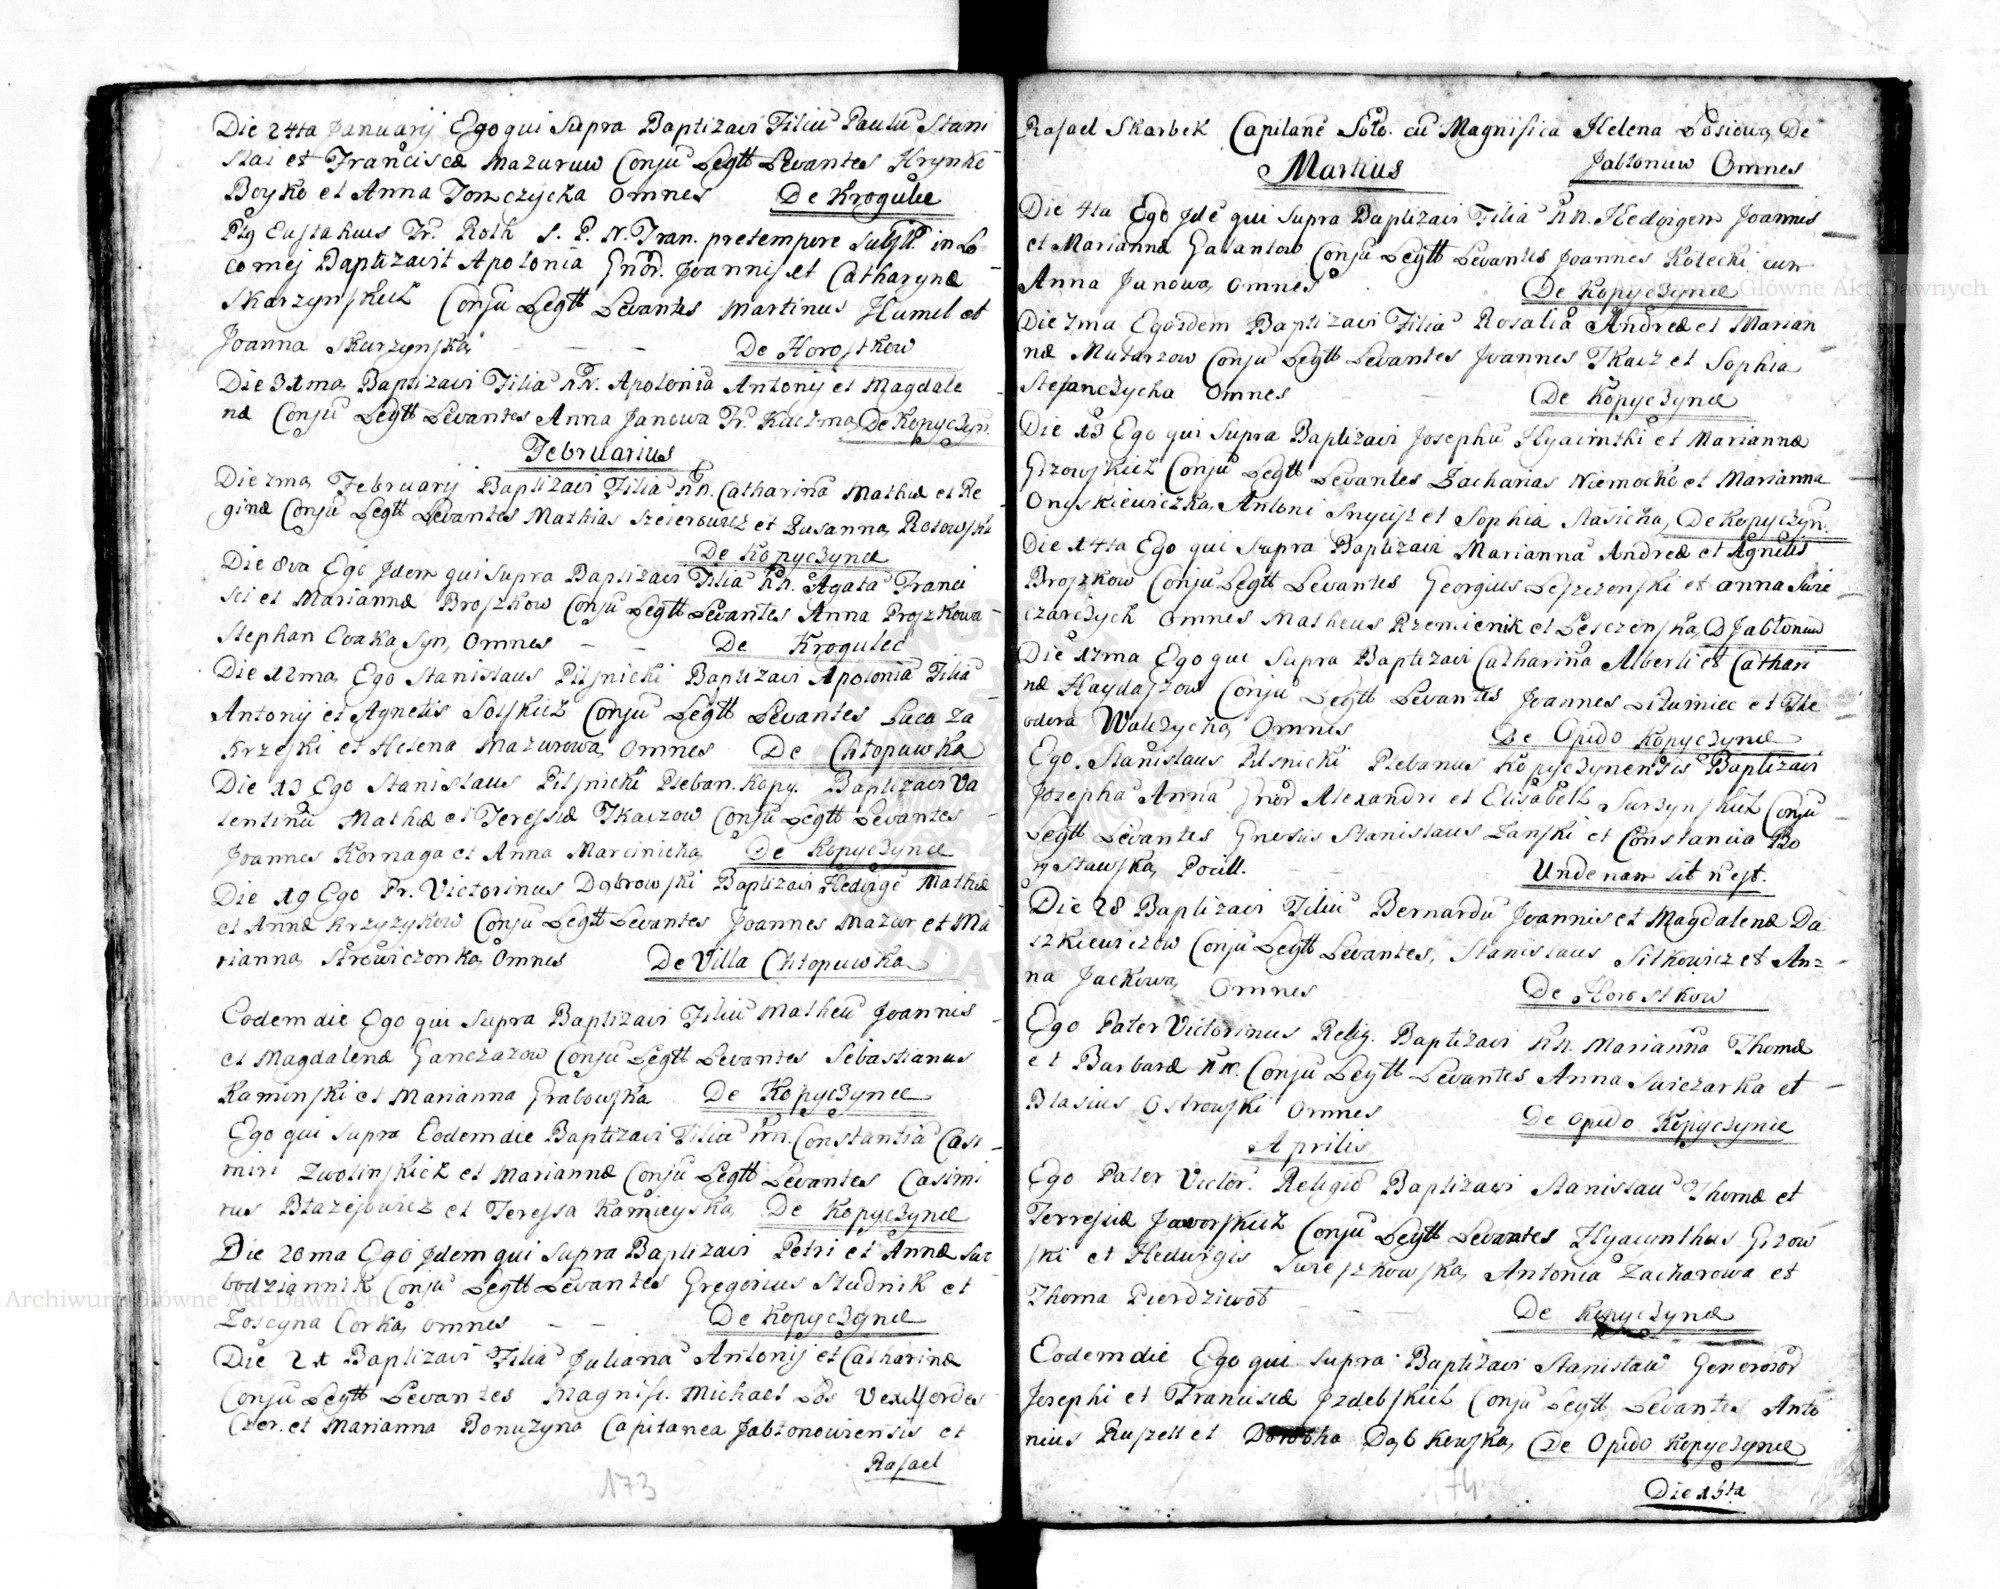 Die 24ta Januarij Ego qui Supra Baptizavi Filiu Paulu Stani
slai et Franciscæ Mazurow Conju Legtt Levantes Hrynko
Boyko et Anna Tomczycka Omnes De Krogulec
Eustakius Fr. Roth S. P. N. Fran. pretempore in Lo
co mej Baptizavit Apolonia Gnor. Joannis et Catharynæ
Skarzynskich Conju Legtt Levantes Martinus Humel et
Joanna Skarzynska De Horostkow
Die 31ma Baptizavi Filia NN. Apolonia Antonij et Magdale
næ Conju Legtt Levantes Anna Janowa Fr. Kuczma De Kopyczyn.
Februarius
Die 7ma Februarij Baptizavi Filia NN. Catharina Mathiæ et Re
ginæ Conju Legtt Levantes Mathias et Zusanna Rosowska
De Kopyczyncæ
Die 8va Ego Jdem qui Supra Baptizavi Filia NN. Agata Franci
sci et Mariannæ Broszkow Conju Legtt Levantes Anna Proszkowa
Stephan Syn, Omnes De Krogulec
Die 12ma Ego Stanislaus Pilsnicki Baptizavi Apolonia Filia
Antonij et Agnetis Solskich Conju Legtt Levantes Luca Za
krzeski et Helena Mazurowa Omnes De Chłopuwka
Die 13 Ego Stanislaus Pilsnicki Pleban. Kopy. Baptizavi Va
lentinu Mathiæ et Teressiæ Tkaczow Conju Legtt Levantes
Joannes Kornaga et Anna Marcinicka De Kopyczyncæ
Die 19 Ego Fr. Victorinus Dąbrowski Baptizavi Hedvige Mathiæ
et Annæ Krzyzykow Conju Legtt Levantes Joannes Mazur et Ma
rianna Omnes De Villa Chłopuwka
Eodem die Ego qui Supra Baptizavi Filiu Matheu Joannis
et Magdalenæ Ganczazow Conju Legtt Levantes Sebastianus
Kaminski et Marianna Grabowska De Kopyczyncæ
Ego qui supra Eodem die Baptizavi Filia NN. Constantia Casi
miri Zwolinskich et Mariannæ Conju Legtt Levantes Casimi
rus Błazejowicz et Teressa De Kopyczyncæ
Die 20ma Ego Jdem qui Supra Baptizavi Petri et Annæ Sw
bodziannik Conju Legtt Levantes Gregorius Studnik et
Corka, omnes De Kopyczyncæ
Die 21 Baptizavi Filia Juliana Antonij et Catharinæ
Conju Legtt Levantes Magnifi. Michael Łos
Czer. et Marianna Capitanea Jabłonowiensis et
Rafael
173
Rafael Skarbek Capitane Soto. cu Magnifica Helena Łosiowa De
Martius Jabłonuw Omnes
Die 4ta Ego Jde qui Supra Baptizavi Filia NN. Hedvigem Joannis
et Mariannæ Galantow Conju Legtt Levantes Joannes Kotecki cum
Anna Janowa Omnes De Kopyczyncæ
Die 7ma Egoidem Baptizavi Filia Rosalia Andreæ et Marian
næ Conju Legtt Levantes Joannes Tkacz et Sophia
Stefanczycha Omnes De Kopyczyncæ
Die 13 Ego qui Supra Baptizavi Josephu Hyacinthi et Mariannæ
Gizowskich Conju Legtt Levantes Zacharias Niemocko et Marianna
Onyskiewiczka, Antoni et Sophia Stasicha, De Kopyczyn.
Die 14ta Ego qui Supra Baptizavi Marianna Andreæ et Agnetis
Broszkow Conju Legtt Levantes Georgius Leszczenski et Anna Swie
czarczych Omnes Matheus Rzemienik et Lesczenska, D Jabłonuw
Die 17ma Ego qui Supra Baptizavi Catharina Alberti et Cathari
næ Haydaszow Conju Legtt Levantes Joannes et The
odora Walczycha, Omnes De Opido Kopyczyncæ
Ego Stanislaus Pilsnicki Plebanus Kopyczynensis Baptizavi
Josepha Anna Gnor Alexandri et Elisabeth Surzynskich Conju
Legtt Levantes Gnosus Stanislaus Zanski et Constancia Bo
rystawska, Pocill. Unde nam sit n est.
Die 28 Baptizavi Filiu Bernardu Joannis et Magdalenæ Da
szkiewiczow Conju Legtt Levantes, Stanislaus Sitkowicz et An=
na Jackowa, Omnes De Horostkow
Ego Pater Victorinus Relig. Baptizavi NN. Marianna Thomæ
et Barbaræ NN. Conju Legtt Levantes Anna Swiczarka et
Blasius Ostrowski Omnes De Opido Kopyczyncæ
Aprilis
Ego Pater Victor. Religio Baptizavi Stanislau Thomæ et
Terresiæ Jaworskich Conju Legtt Levantes Hyacinthus Gizow
ski et Hedvigis Antonia Zacharowa et
Thoma Pierdziwot De Kopyczyncæ
Eodem die Ego qui supra Baptizavi Stanislau Generosor
Josephi et Franciscæ Jzdebskich Conju Legtt Levantes Anto
nius et Dorotha Dąbkowska, De Opido Kopyczyncæ
Die 15ta
174
Archiwum Główne Akt Dawnych
Archiwum Główne Akt Dawnych